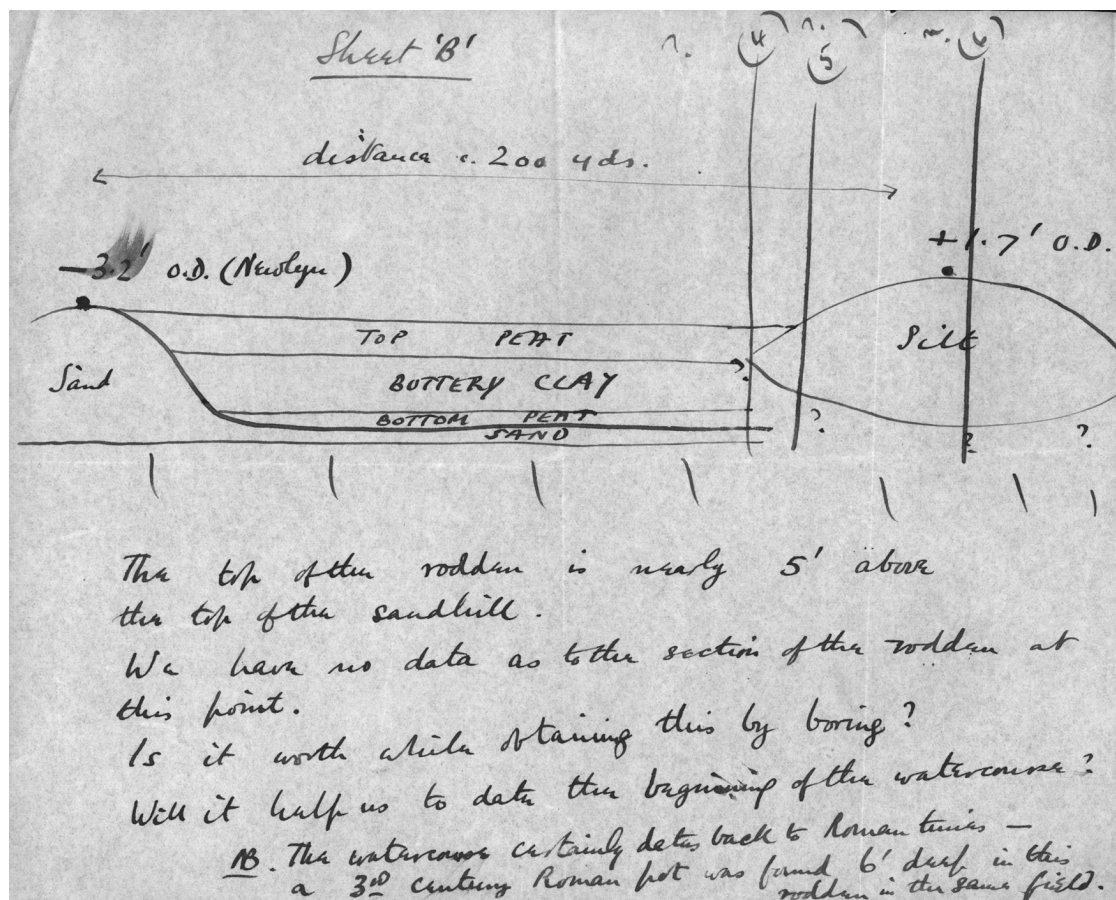 Sheet 'B'
(4)
(5)
(6)
distance c. 200 yds.
+1.7' O.D.
-3.2' O.D. (Newlyn)
TOP PEAT
Silt
Sand
BUTTERY CLAY
?
BOTTOM PEAT
?
SAND
?
?
The top of the rodden is nearly 5' above
the top of the sandhill.
We have no data as to the section of the rodden at
this point.
Is it worth while obtaining this by boring?
Will it help us to date the beginning of the watercourse?
NB. The watercourse certainly dates back to Roman times —
a 3rd century Roman pot was found 6' deep in this
rodden in the same field.